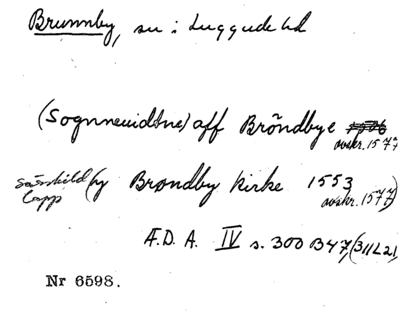 Brunnby, sn i Luggude hd
(Sognneuidtne) aff Brõndbye
avskr. 1577
särskild lapp (y Brøndby kirke 1553 avskr. 1577)
Æ.D.A. IV s. 300 B47, (311L21)
Nr 6598.